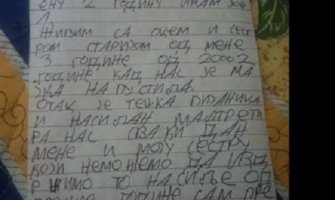 ЕМУ 2 ГОДИНУ ИМАМ
ЖИВИМ СА ОЦЕМ И СЕСТ
РОМ СТАРИЈОМ ОД МЕНЕ
3 ГОДИНЕ ОД 2000 2
ГОДИНЕ КАД НАС ЈЕ МА
ЈКА НАПУСТИЛА
ОТАЦ ЈЕ ТЕЖКА ПИЈАНИЦА
И НАСИЛАН МАЛТРЕТИ
РА НАС СВАКИ ДАН
МЕНЕ И МОЈУ СЕСТРУ
КОЈИ НЕМОЖЕМО ДА ИЗД
РЖИМО ТО НАСИЉЕ ОД
ГОДИНЕ САМ ПРЕ